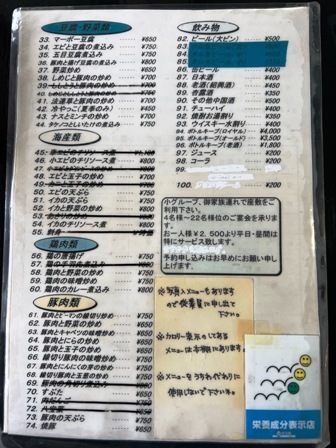 豆腐・野菜類
33. マーボー豆腐 ¥650
34. エビと豆腐の煮込み ¥750
35. 五目豆腐煮込み ¥750
36. 豚肉と揚げ豆腐の煮込み ¥750
37. 野菜炒め ¥650
38. しめじと豚肉の炒め ¥750
39. ししとうと豚肉の炒め
40. もやしと豚肉の炒め
41. 法蓮草と豚肉の炒め ¥750
42. 冷やっこ(夏季のみ) ¥450
43. ナスとミンチの炒め ¥750
44. タケノコとしいたけの煮込み ¥750
海産類
46. 小エビのチリソース煮 ¥800
48. エビと玉子の炒め ¥750
50. エビの天ぷら ¥750
51. イカの天ぷら ¥750
52. イカと野菜の炒め ¥800
53. あさりの炒め
54. イカのチリソース煮 ¥800
鶏肉類
56. 鶏の唐揚げ ¥750
58. 鶏肉と野菜の炒め ¥750
59. 鶏肉の味噌炒め ¥750
60. 鶏肉のカレー煮込み ¥800
豚肉類
61. 豚肉とピーマンの細切り炒め ¥750
62. 豚肉と野菜の炒め ¥650
63. 豚肉とキャベツの味噌炒め ¥750
64. 豚肉とにらの炒め ¥750
65. 豚肉と玉子の炒め ¥750
66. 細切り豚肉の味噌炒め ¥750
67. 豚肉とにんにくの芽の炒め ¥750
68. 細切り豚肉と玉葱の炒め ¥750
70. すぶた ¥750
72. 八宝菜
73. 豚肉の天ぷら ¥750
74. 焼豚 ¥650
飲み物
82. ビール(大ビン) ¥500
86. 缶ビール ¥400
87. 日本酒 ¥400
88. 老酒(紹興酒) ¥400
89. 杏露酒 ¥350
90. その他中国酒 ¥500
91. チューハイ ¥400
92. 焼酎お湯割り ¥400
93. ウイスキー水割り ¥400
94. ボトルキープ(ロイヤル) ¥4,000
95. ボトルキープ(オールド) ¥3,500
96. ボトルキープ(老酒) ¥1,800
97. ジュース ¥200
98. コーラ ¥200
99.
100. ¥200
小グループ、御家族連れで座敷をご
利用下さい。
4名様〜22名様位のご宴会を承り
ます。
お一人様¥2,500より平日・昼間は
特にサービス致します。
予約申し込みはお早めにお願い申
し上げます。
※写真入メニューもあります
ので従業員に申し出て
下さい。
※カロリー表示のしてある
メニューは本棚にあります。
※メニューをうちわ代わりに
使用しないで下さい。
栄養成分表示店